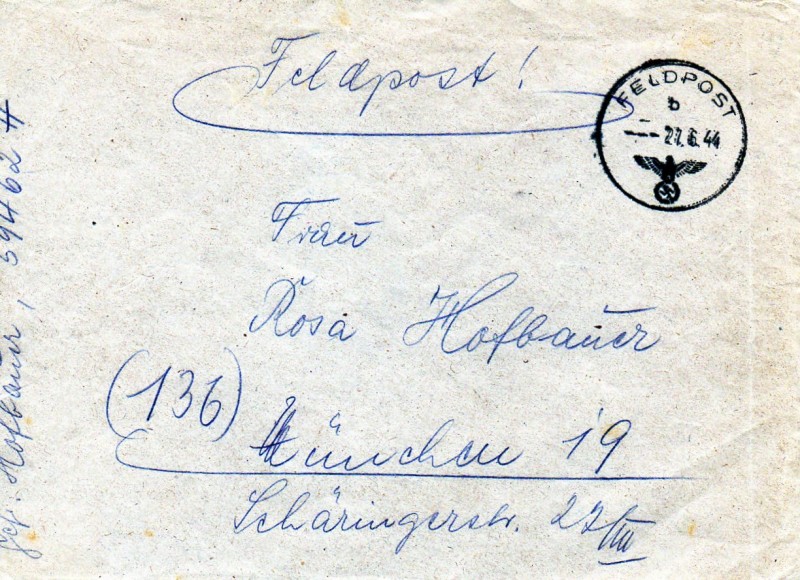 Feldpost!
FELDPOST
b
27.6.44
Frau
Rosa Hofbauer
(136)
München 19
Schäringerstr. 27/III
Hofbauer, 59462